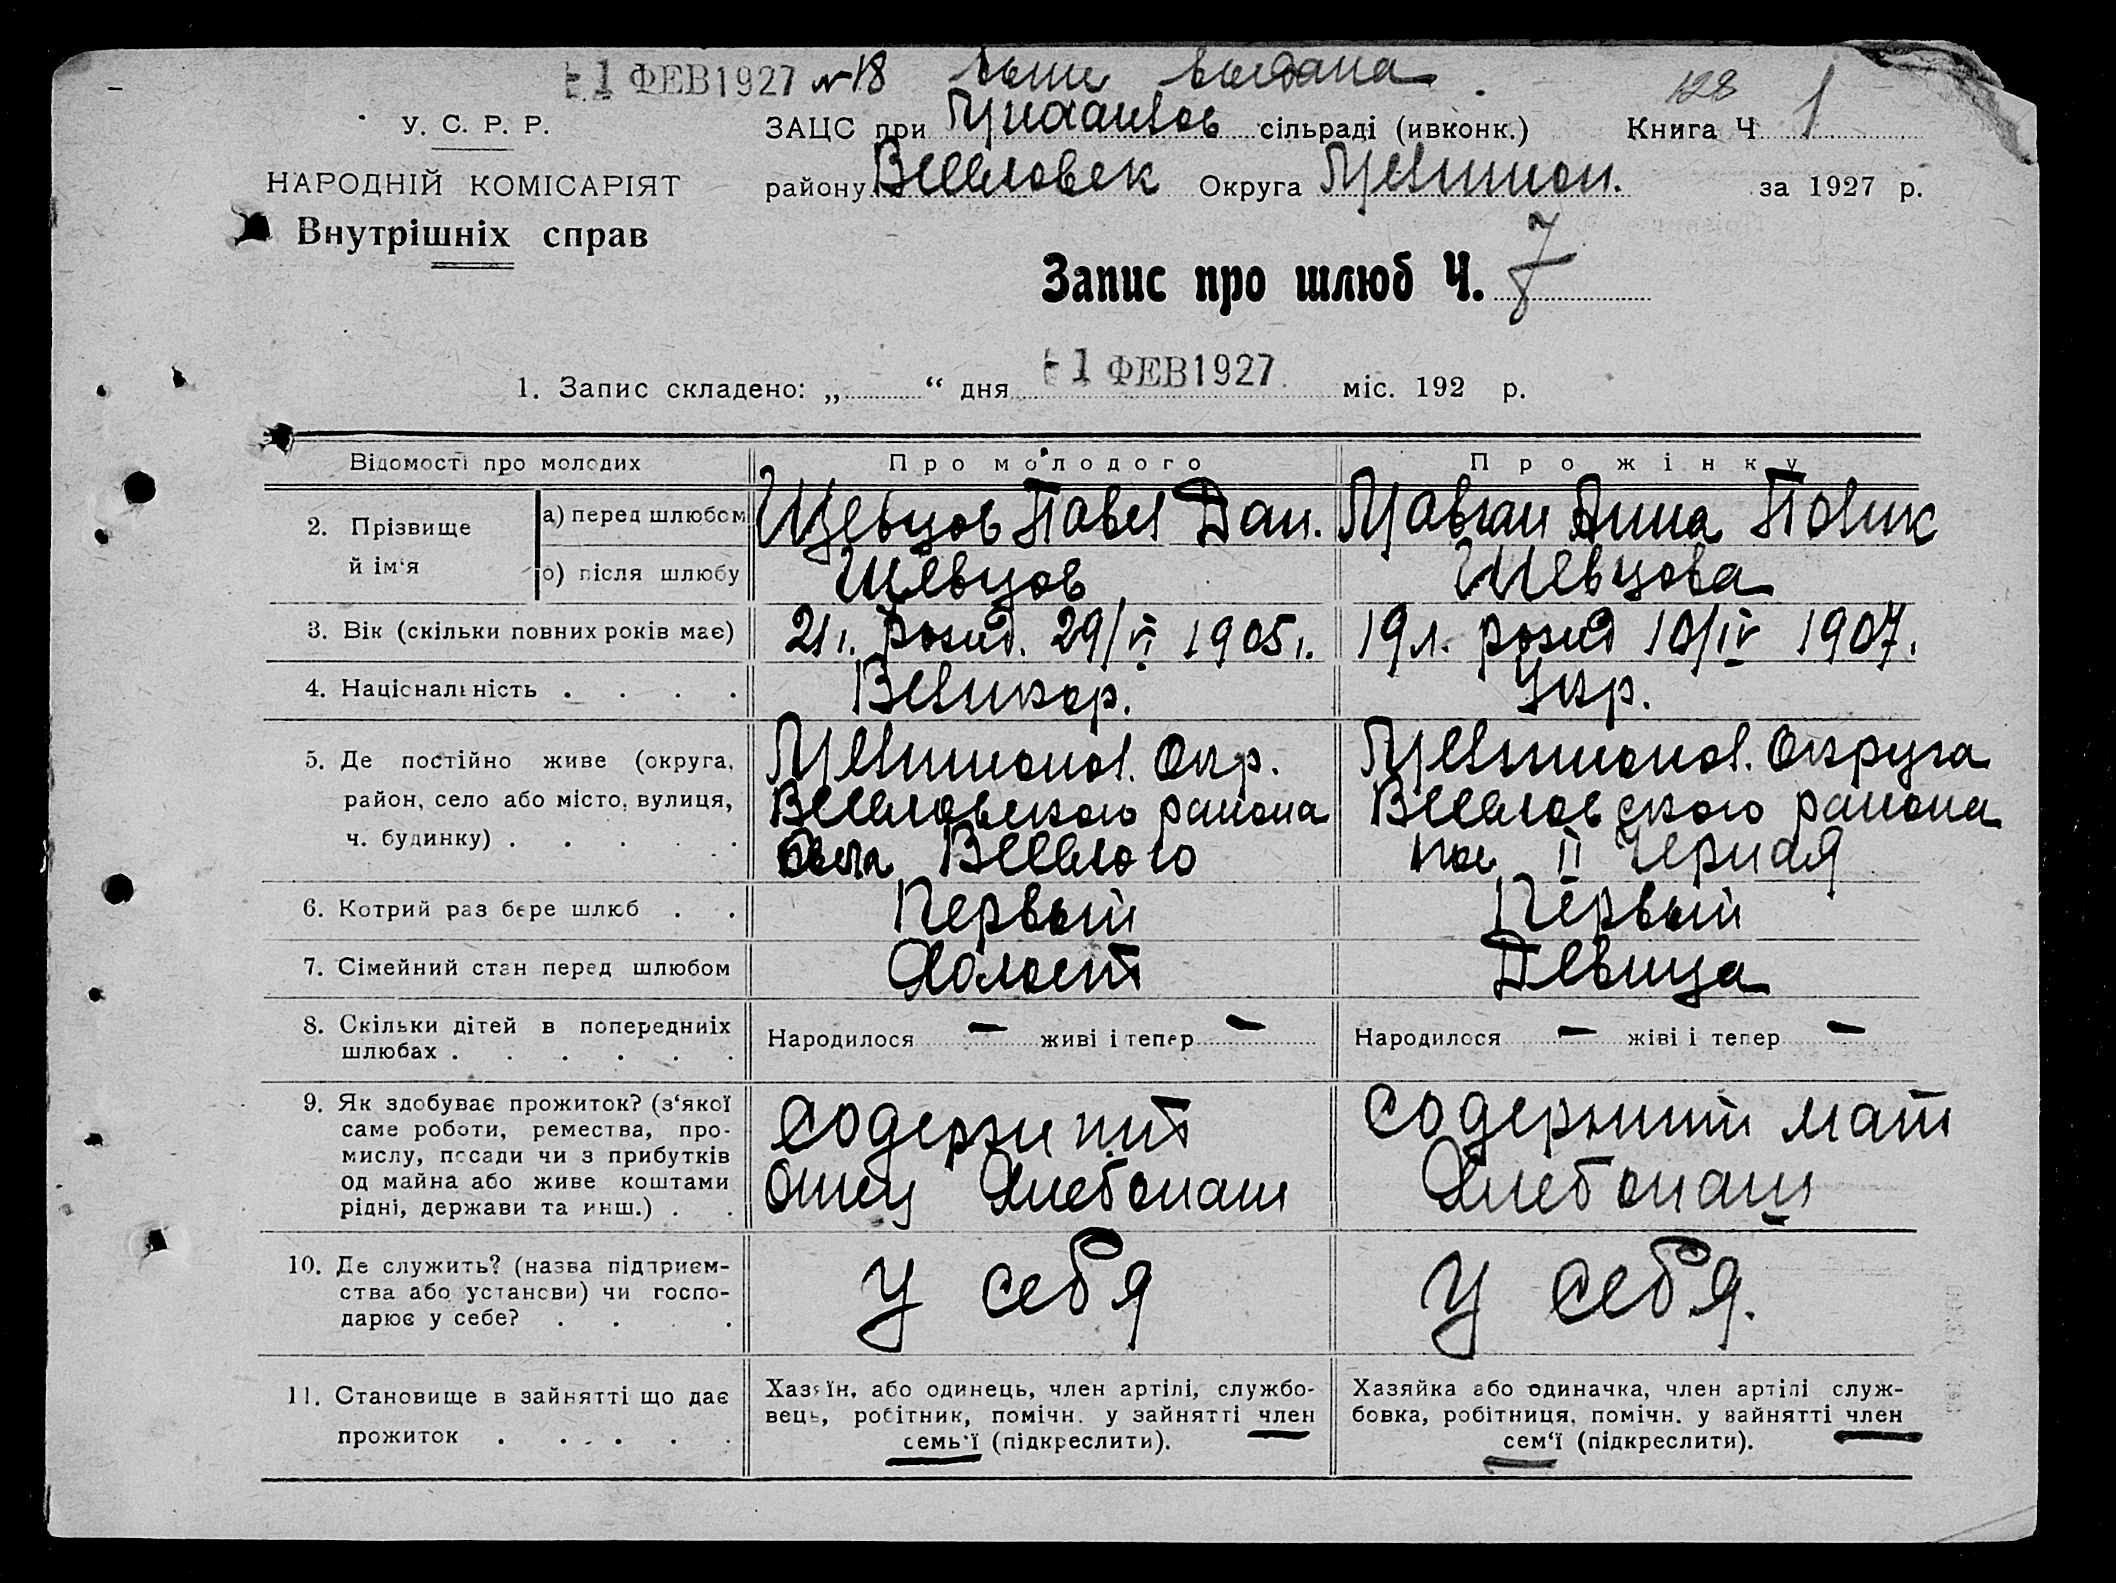 -1 ФЕВ 1927 № 18 выдана
128
У. С. Р. Р.
ЗАЦС при Михайлов сільраді (ивконк.) Книга Ч 1
НАРОДНІЙ КОМІСАРІЯТ
району Веселовск Округа Мелитоп. за 1927 р.
Внутрішніх справ
Запис про шлюб Ч. 7
1. Запис складено: „ “ дня -1 ФЕВ 1927 міс. 192 р.
Відомості про молодих Про молодого Про жінку
2. Прізвище й ім‘я
а) перед шлюбом Шевцов Павел Дан. Анна
б) після шлюбу Шевцов Шевцова
3. Вік (скільки повних років має) 21 г. рожд. 29/VI 1905 г. 19 л. рожд 10/IV 1907.
4. Національність . . . . Великор. Укр.
5. Де постійно живе (округа, Мелитопол. Окр. Мелитопол. Округа
район, село або місто, вулиця, Веселовского района Веселовского района
ч. будинку) . . . . . Села Веселого пос II Черная
6. Котрий раз бере шлюб . . Первый Первый
7. Сімейний стан перед шлюбом Холост Девица
8. Скільки дітей в попередниіх Народилося — живі і тепер — Народилося — жіві і тепер —
шлюбах . . . . . .
9. Як здобуває прожиток? (з‘якої содержит содержит мат
саме роботи, ремества, про-
мислу, посади чи з прибутків отец Хлебопаш Хлебопаш
од майна або живе коштами
рідні, держави та инш.) . .
10. Де служить? (назва підприєм- у себя у себя.
ства або установи) чи госпо-
дарює у себе? . . . .
11. Становище в зайнятті що дає Хазяїн, або одинець, член артілі, службо- Хазяйка або одиначка, член артілі служ-
вець, робітник, помічн. у зайнятті член бовка, робітниця, помічн. у зайнятті член
прожиток . . . . . . семь‘ї (підкреслити). сем‘ї (підкреслити).